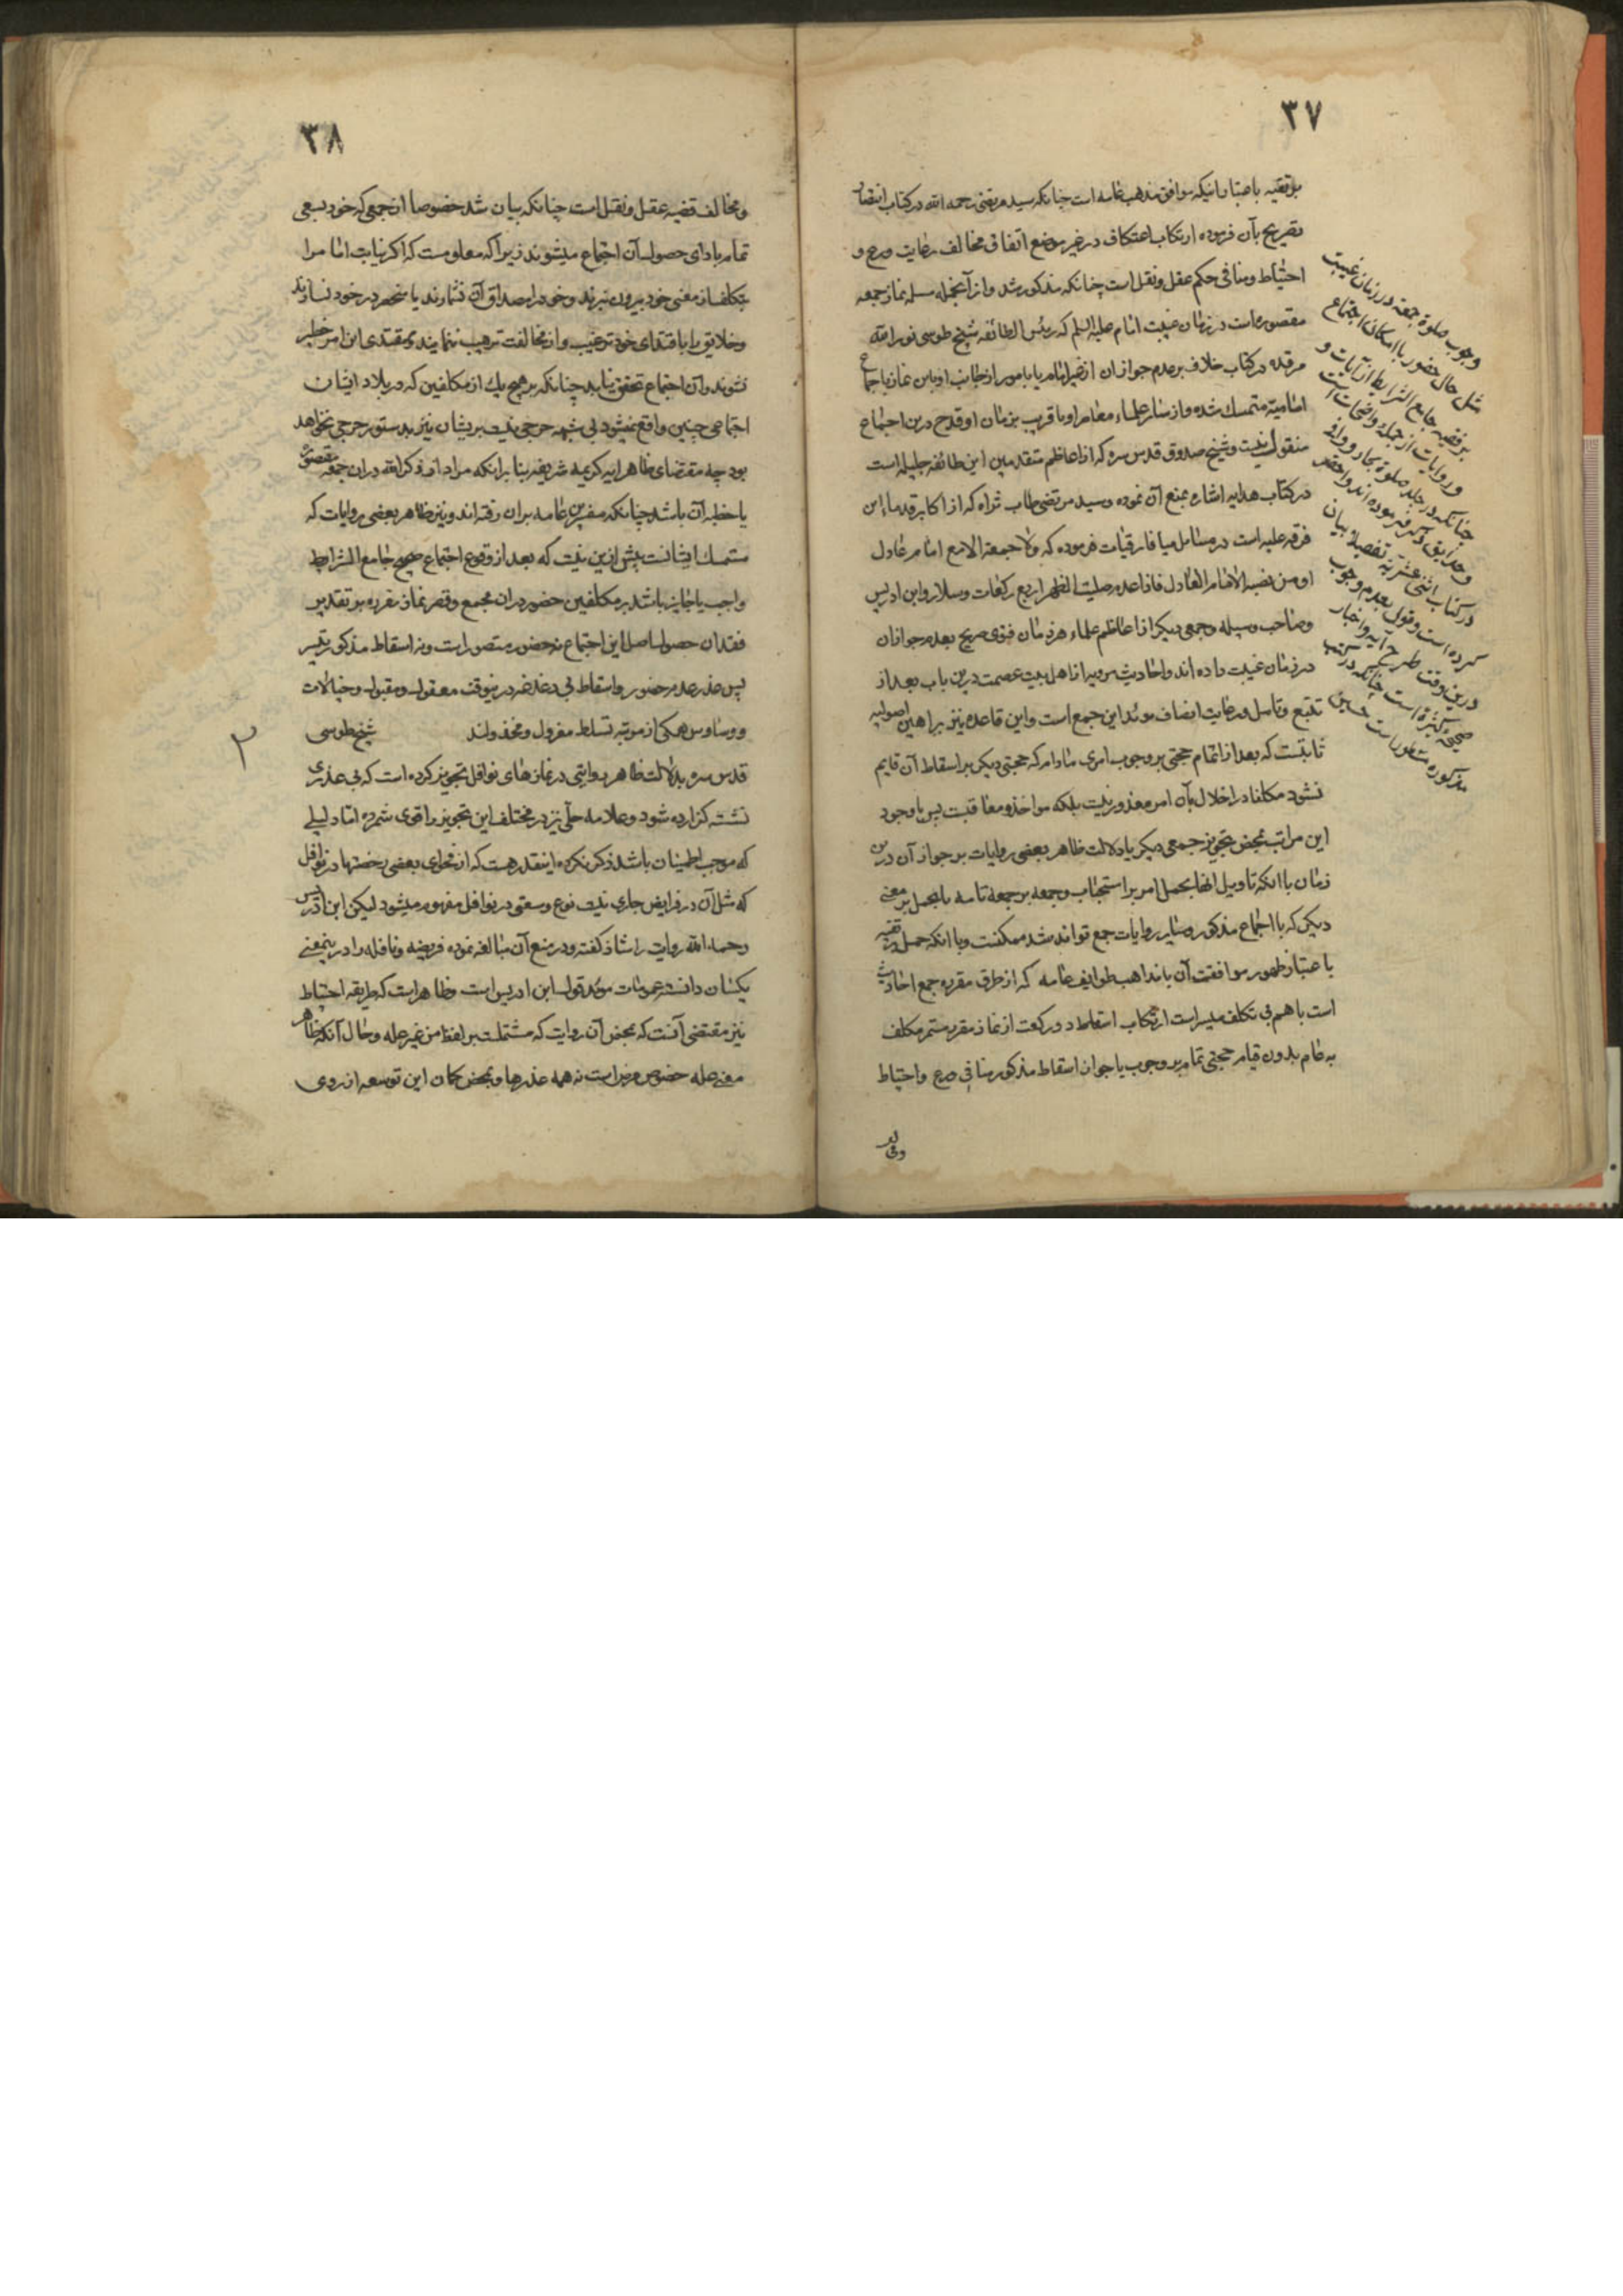 ۳۷
بر تقیه باعتبار انیکه موافق مذهب عامه است چنانکه سید مرتضی رحمه الله در کتاب انتصار
تصریح بآن فرموده ارتکاب اعتکاف در غیر موضع اتفاق مخالف رعایت ورع و
احتیاط و منافی حکم عقل و نقل است چنانکه مذکور شد و از آنجمله مسله نماز جمعه
مقصوره است در زمان غیبت امام علیه السلم که رئیس الطائفه شیخ طوسی نور الله
مرقده در کتاب خلاف بر عدم جواز ان از غیر امام یا مامور از جانب او باین نماز باجماع
امامیه متمسک شده و از سایر علماء معاصر او یا قریب بزمان او قدح درین اجماع
منقول نیست و شیخ صدوق قدس سره که از اعاظم متقدمین این طائفه جلیله است
در کتاب هدایه اشاره بمنع آن نموده و سید مرتضی طاب ثراه که از اکابر قدماء این
فرقه علیه است در مسایل میافارقیات فرموده که ولا جمعة الا مع امام عادل
او من نصبه الامام العادل فاذا عدم صلیت الظهر اربع رکعات و سلار و ابن ادریس
و صاحب وسیله و جمعی دیگر از اعاظم علماء هر زمان فتوی صریح بعدم جواز ان
در زمان غیبت داده اند و احادیث مرویه از اهل بیت عصمت درین باب بعد از
تتبع و تامل و رعایت انصاف موید این جمع است و این قاعده نیز براهین اصولیه
ثابتست که بعد از اتمام حجتی بر وجوب امری مادام که حجتی دیگر بر اسقاط آن قایم
نشود مکلف در اخلال بآن امر معذور نیست بلکه مواخذ و معاقبست پس با وجود
این مراتب بمحض تجویز جمعی دیگر یا دلالت ظاهر بعضی روایات بر جواز آن درین
زمان با انکه تاویل انها بحمل امر بر استحباب و جمعه بر جمعه تامه یا بحمل بر معنی
دیگر که با اجماع مذکور و سایر روایات جمع تواند شد ممکنست و با انکه حمل بر تقیه
باعتبار ظهور موافقت آن با مذاهب طوایف عامه که از طرق مقرره جمع احادیث
است باهم بی تکلف میسر است ارتکاب اسقاط دو رکعت از نماز مقرر مستمر مکلف
به عام بدون قیام حجتی تمام بر وجوب یا جواز اسقاط مذکور منافی ورع و احتیاط
وجوب صلوة جمعه در زمان غیبت
مثل حال حضور با امکان اجتماع
بر فقیه جامع الشرایط از آیات و
و روایات از جمله واضحات است
چنانکه در جلد صلوة بحار و وافی
و حدایق و غیره نموده اند و احقر
در کتاب اثنی عشریه تفصیلا بیان
کرده است و قول بعدم وجوب
درین وقت طرح آیه و اخبار
صحیحه کثیره است چنانکه در کتب
مذکوره مسطور است
۳۸
و مخالف قضیه عقل و نقل است چنانکه بیان شد خصوصا از جمعی که خود بسعی
تمام بادای حصول آن اجتماع میشوند زیرا که معلومست که اگر نیابت امام را
بتکلف از معنی خود بیرون نبرند و خود را مصداق آن نشمارند یا منحصر در خود نسازند
و خلایق را باقتدای خود ترغیب و از مخالفت ترهیب ننمایند و مقتدی این امر خطیر
نشوند آن اجتماع تحقق نیابد چنانکه بر هیچ یک از مکلفین که در بلاد ایشان
اجتماعی چنین واقع نمیشود بی شبهه حرجی نیست بریشان نیز بدستور حرجی نخواهد
بود چه مقتضای ظاهر ایه کریمه شریفه بنا برانکه مراد از ذکر الله دران جمعه مقصوره
یا خطبه آن باشد چنانکه مفسرین عامه بران رفته اند و نیز ظاهر بعضی روایات که
متمسک ایشانست بیش ازین نیست که بعد از وقوع اجتماع صحیح جامع الشرایط
واجب یا جایز باشد بر مکلفین حضور دران مجمع و قصر نماز مقرره بر تقدیر
فقدان حصول اصل این اجتماع نه حضور متصور است و نه اسقاط مذکور میسر
پس عذر عدم حضور و اسقاط بی دغدغه درینوقت معقول و مقبول و خیالات
و وساوس همگی از مرتبه تسلط معزول و مخذولند شیخ طوسی
قدس سره بدلالت ظاهر روایتی در نمازهای نوافل تجویز کرده است که بی عذری
نشسته گزارده شود و علامه حلی نیز در مختلف این تجویز را قوی شمرده اما دلیلی
که موجب اطمینان باشد ذکر نکرده اینقدر هست که از فحوای بعضی رخصتها در نوافل
که مثل آن در فرایض جاری نیست نوع وسعتی در نوافل مفهوم میشود لیکن ابن ادریس
رحمه الله روایت را شاذ گفته و در منع آن مبالغه نموده فریضه و نافله را درینمعنی
یکسان دانسته عمومات موید قول ابن ادریس است و ظاهر است که طریقه احتیاط
نیز مقتضی آنست که بمحض آن روایت که مشتملست بر لفظ من غیر عله و حال آنکه ظاهر
معنی عله خصوص مرض است نه همه عذرها و بمحض گمان این توسعه از روی